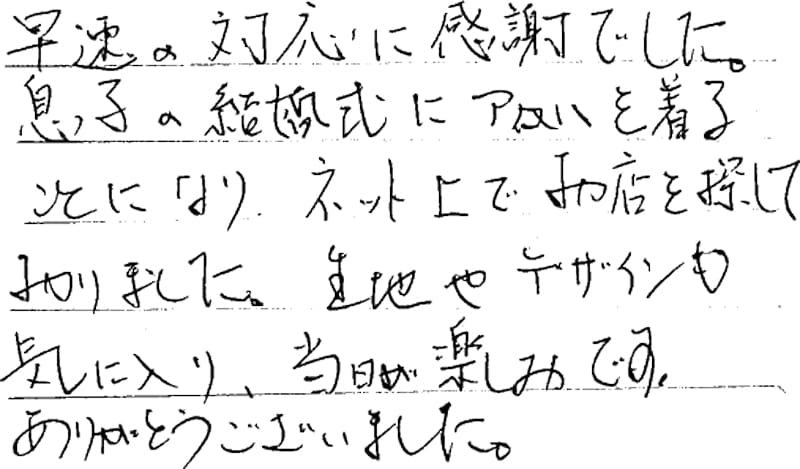 早速の対応に感謝でした。
息子の結婚式にアロハを着る
ことになり ネット上でお店を探して
おりました。生地やデザインも
気に入り、当日が楽しみです。
ありがとうございました。